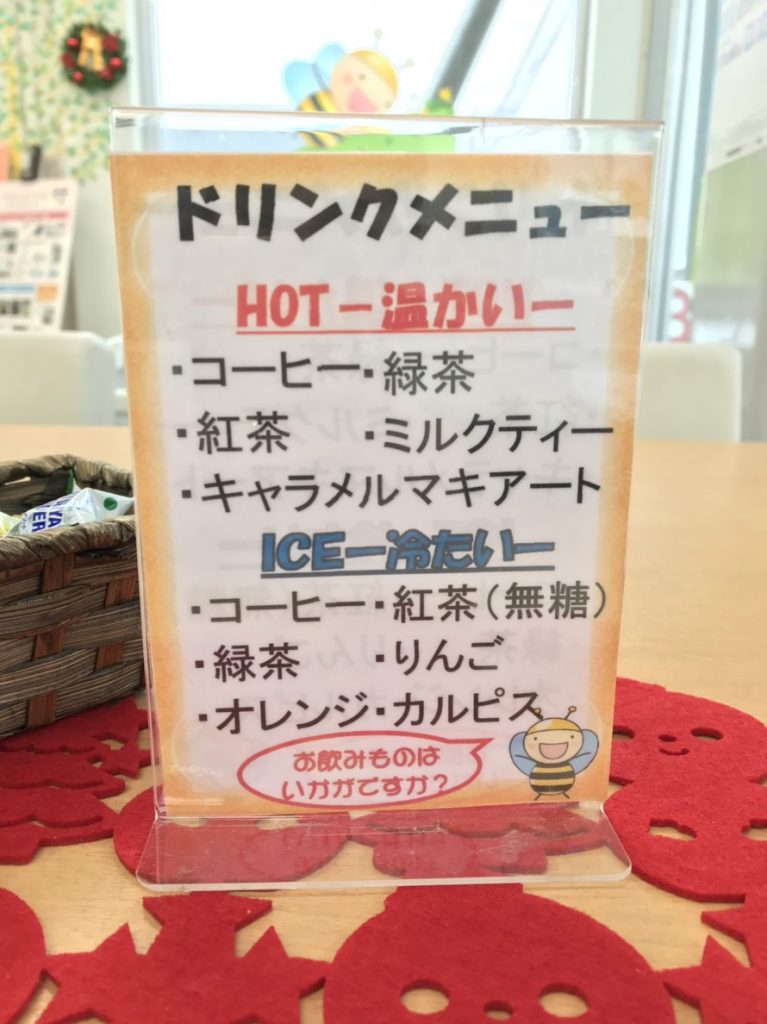 ドリンクメニュー
HOT－温かい－
・コーヒー・緑茶
・紅茶　・ミルクティー
・キャラメルマキアート
ICE－冷たい－
・コーヒー・紅茶(無糖)
・緑茶　・りんご
・オレンジ・カルピス
お飲みものは
いかがですか？